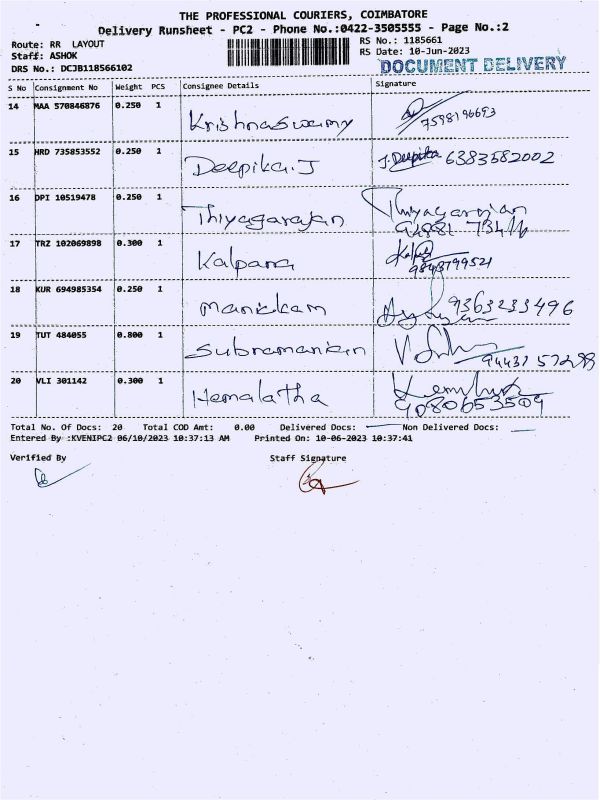 THE PROFESSIONAL COURIERS, COIMBATORE
Delivery Runsheet - PC2 - Phone No.:0422-3505555 - Page No.:2
Route: RR LAYOUT RS No.: 1185661
Staff: ASHOK RS Date: 10-Jun-2023
DOCUMENT DELIVERY
DRS No.: DCJB118566102
S No Consignment No Weight PCS Consignee Details Signature
14 MAA 570846876 0.250 1 Krishnaswamy 7598196693
15 HRD 735853552 0.250 1 Deepika.J J.Deepika 6383582002
16 DPI 10519478 0.250 1 Thiyagarajan Thiyagarajan
17 TRZ 102069898 0.300 1 Kalpana 9843799521
18 KUR 694985354 0.250 1 Manickam 9363233496
19 TUT 484055 0.800 1 Subramanian
20 VLI 301142 0.300 1 Hemalatha 9080653509
Total No. Of Docs: 20 Total COD Amt: 0.00 Delivered Docs: Non Delivered Docs:
Entered By :KVENIPC2 06/10/2023 10:37:13 AM Printed On: 10-06-2023 10:37:41
Verified By Staff Signature